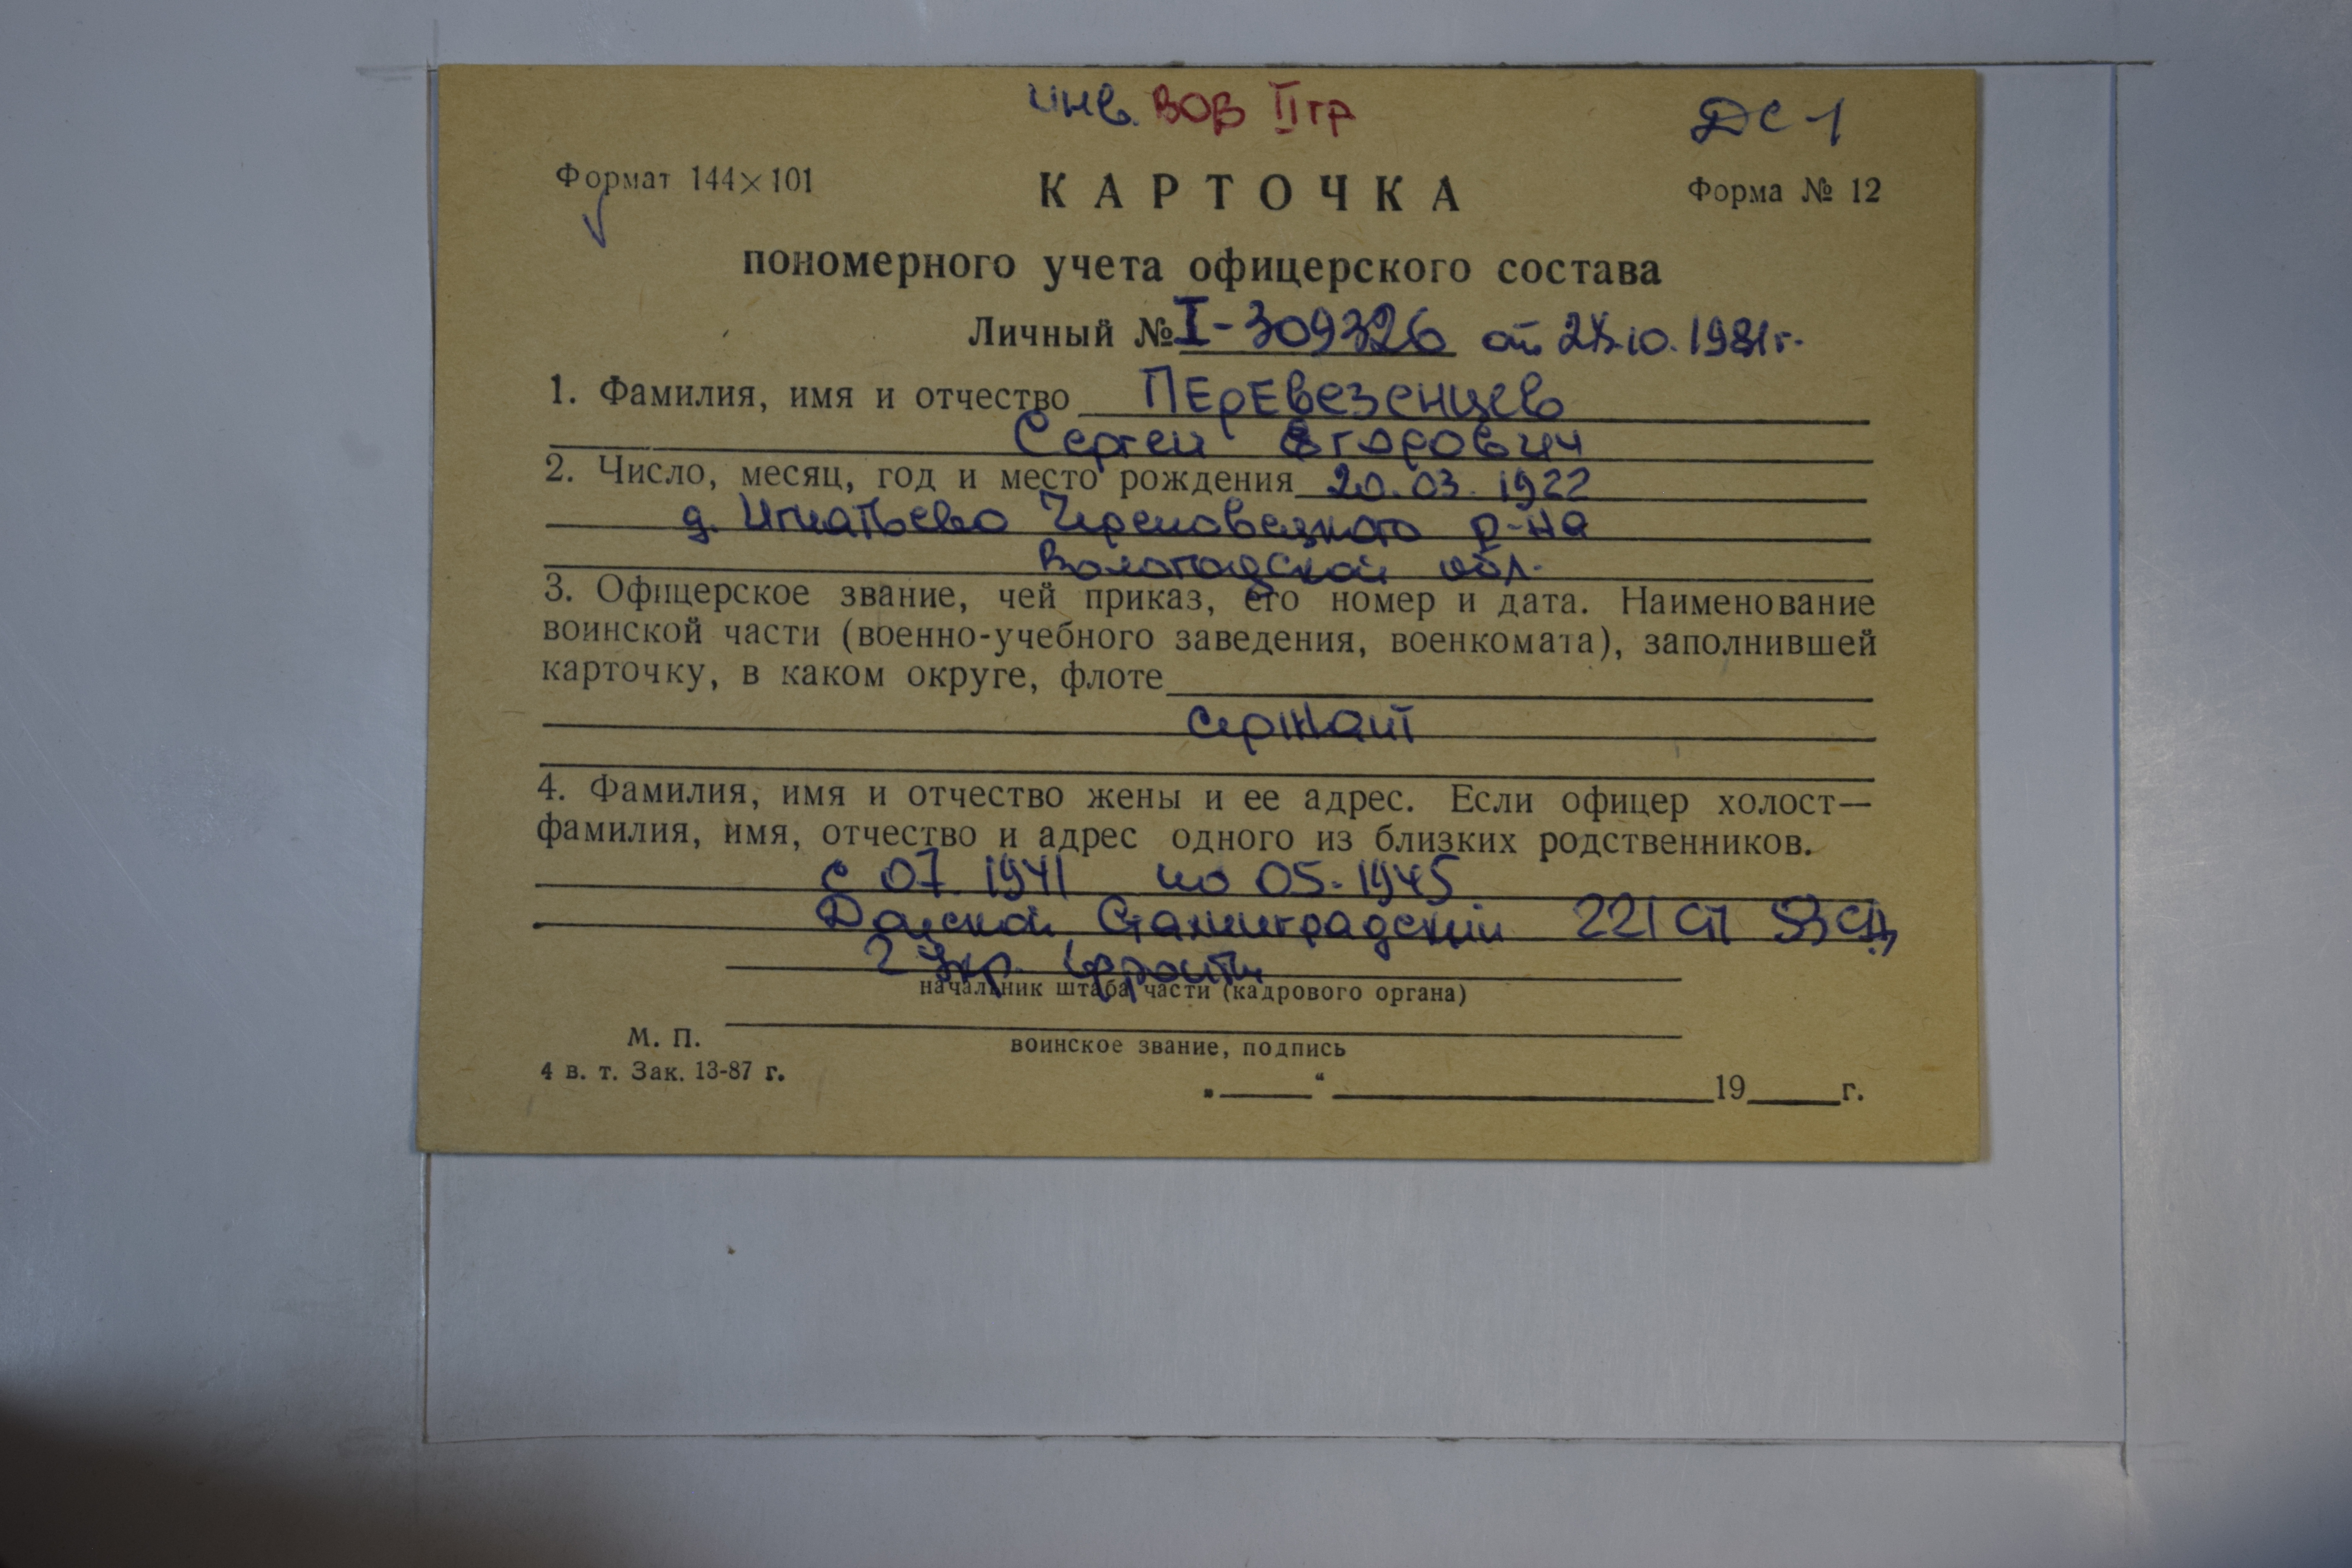 инв. ВОВ II гр
ДС-1
Формат 144×101
КАРТОЧКА
Форма № 12
пономерного учета офицерского состава
Личный № I-309326 от 10.1981г.
1. Фамилия, имя и отчество Перевезенцев
Сергей Егорович
2. Число, месяц, год и место рождения 20.03.1922
д. Игнатьево Череповецкого р-на
Вологодской обл.
3. Офицерское звание, чей приказ, его номер и дата. Наименование
воинской части (военно-учебного заведения, военкомата), заполнившей
карточку, в каком округе, флоте
сержант
4. Фамилия, имя и отчество жены и ее адрес. Если офицер холост—
фамилия, имя, отчество и адрес одного из близких родственников.
с 07.1941 по 05.1945
Донской, Сталинградский 221 СП 53 СД,
2 Укр. фронты
начальник штаба части (кадрового органа)
М. П.
воинское звание, подпись
4 в. т. Зак. 13-87 г.
„ “ 19 г.